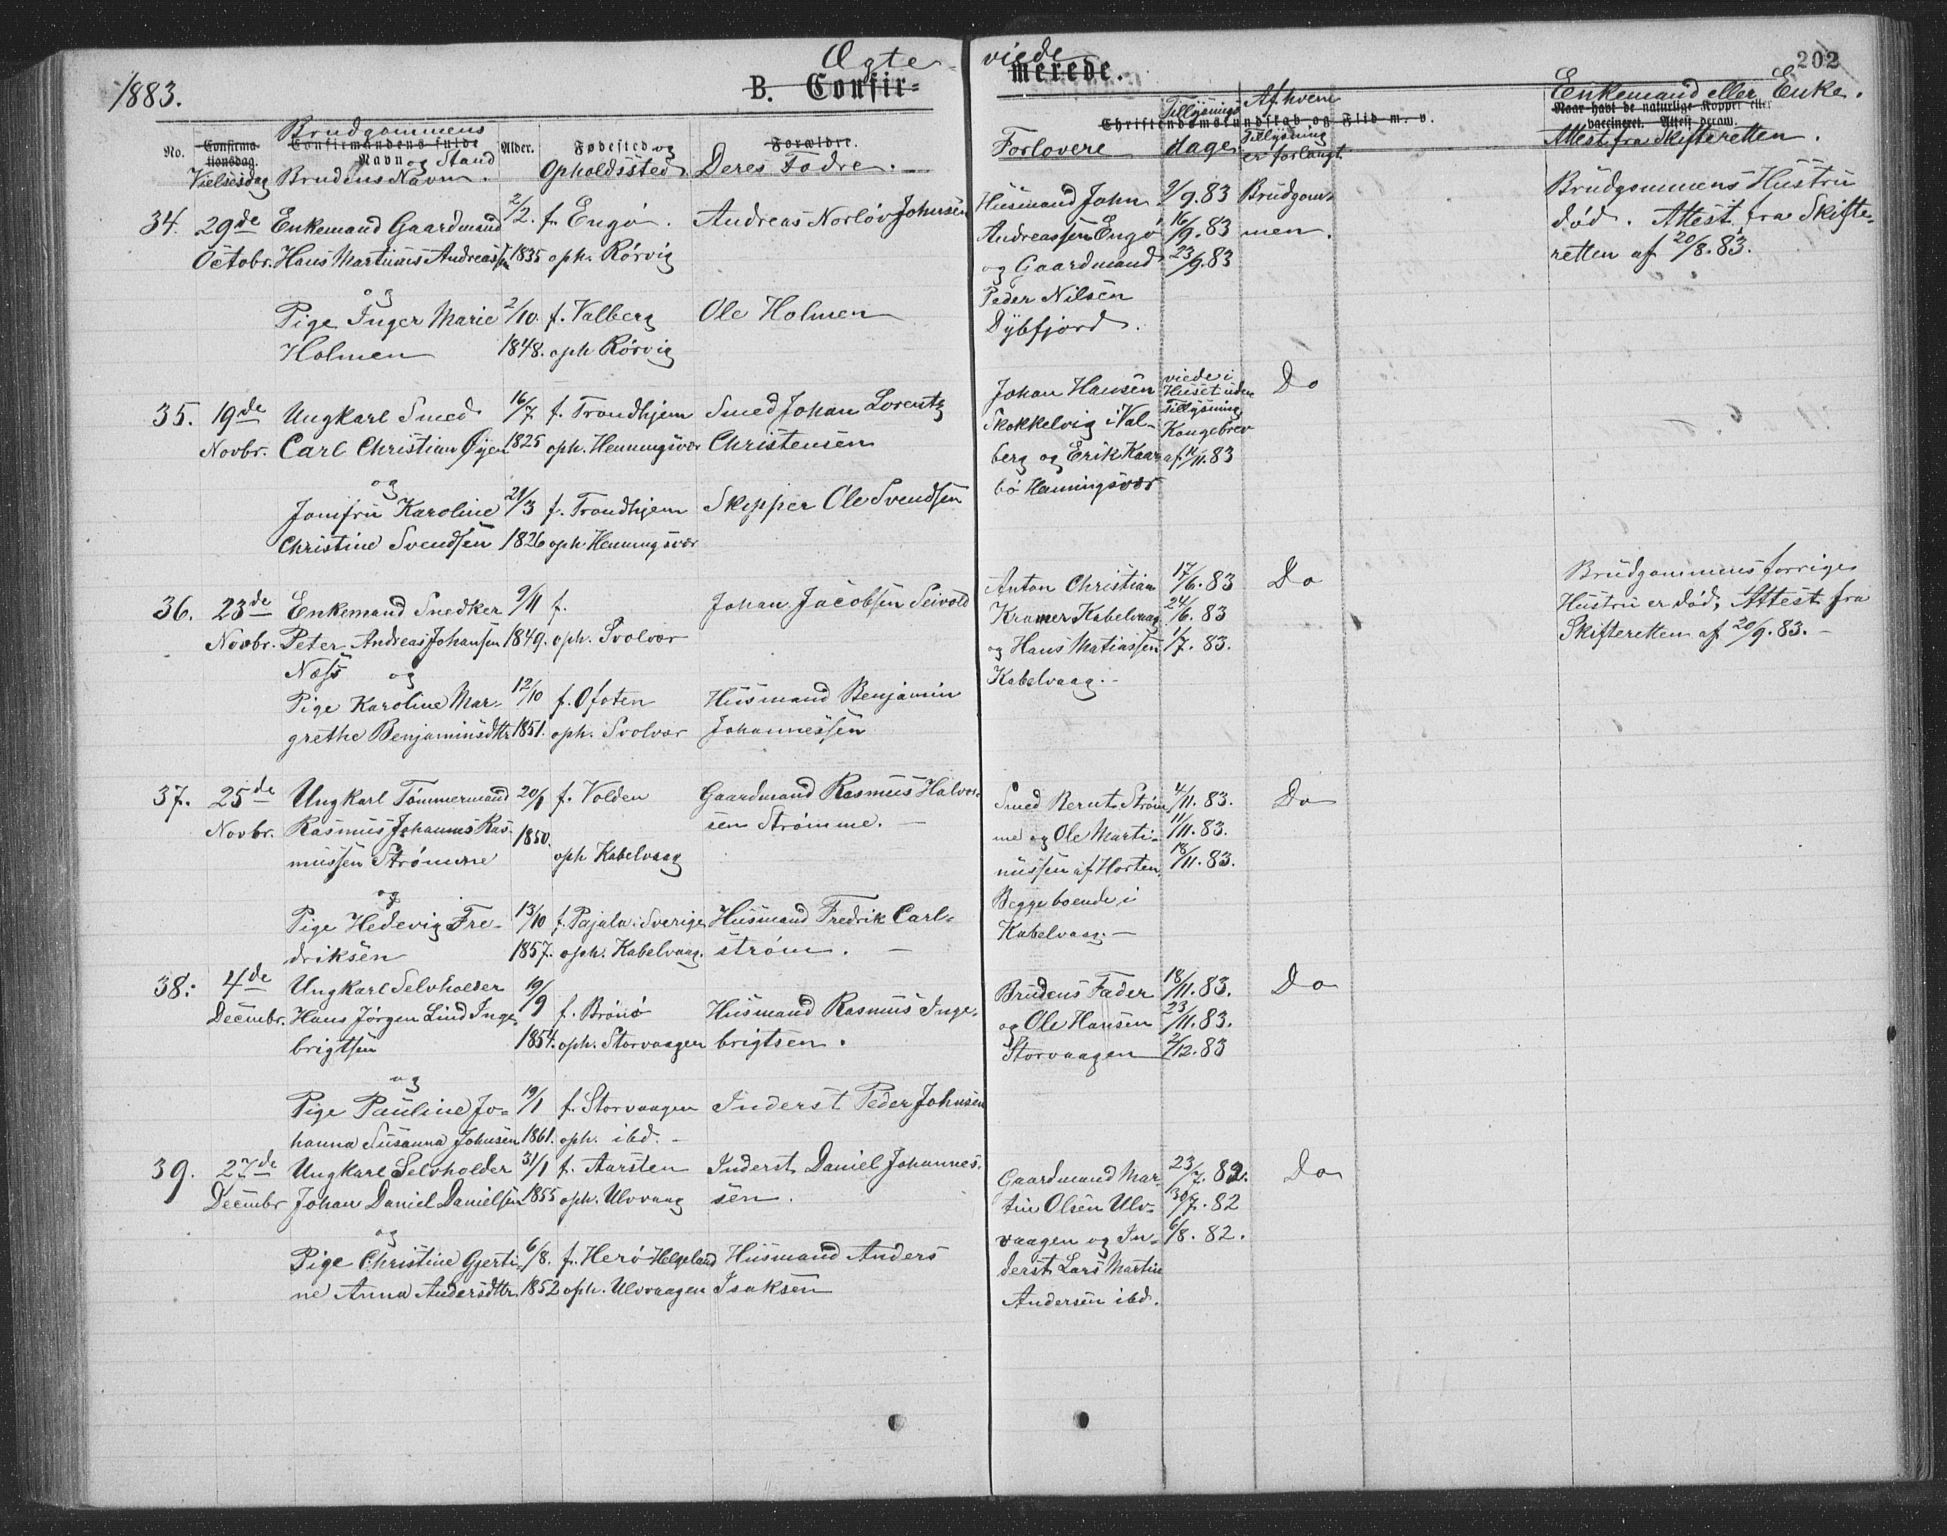 1883.
Ægte viede
B. Confirmerede.
202
No.
Confirmationsdag.
Vielsesdag
Brudgommens
Confirmandens fulde
Navn og Stand
Brudens Navn.
Alder.
Fødested og
Opholdssted
Forældre.
Deres Fædre.
Christendomskundskab og Flid m. v.
Forlovere
Tillysnings
dage
Af hvem
Tillysning
er forlangt
Enkemand eller Enke.
Naar havt de naturlige Kopper eller
vaccineret. Attest derom.
Attest fra Skifteretten.
34. 29de Enkemand Gaardmand 2/2. f. Engø. Andreas Norløv Johnsen
Octobr. Hans Martinus Andreass. 1835 oph. Rørvig
og
Pige Inger Marie 2/10. f. Valberg Ole Holmen
Holmen 1848. oph Rørvig
Husmand John 9/9. 83 Brudgom-
Andreassen Engø 16/9. 83 men.
og Gaardmand 23/9. 83
Peder Nilsen
Dybfjord.
Brudgommens Hustru
død. Attest fra Skifte-
retten af 20/8. 83.
35. 19de Ungkarl Smed 16/7 f. Trondhjem Smed Johan Lorentz
Novbr. Carl Christian Øyen 1825 oph. Henningsvær Christensen
og
Jomfru Karoline 21/3 f. Trondhjem Skipper Ole Svendsen
Christine Svendsen 1826 oph Henningsvær
Johan Hansen viede i Do
Skokkelvig i Val- Huset uden
berg og Erik Kaar- Tillysning
bø Henningsvær Kongebrev
af 11/11. 83
36. 23de Enkemand Snedker 9/11 f. Johan Jacobsen Seivold
Novbr. Peter Andreas Johansen 1849. oph. Svolvær
Næss og
Pige Karoline Mar- 12/10 f. Ofoten Husmand Benjamin
grethe Benjaminsdttr 1851. oph. Svolvær Johannessen
Anton Christian 17/6. 83 Do
Kramer Kabelvaag 24/6. 83
og Hans Matiassen 1/7. 83.
Kabelvaag.
Brudgommens forrige
Hustru er død, Attest fra
Skifteretten af 20/9. 83.
37. 25de Ungkarl Tømmermand 20/1 f. Volden Gaardmand Rasmus Halvor-
Novbr. Rasmus Johannes Ras- 1850. sen Strømme.
mussen Strømme oph Kabelvaag
og
Pige Hedevig Fre- 13/10 f. Pajala i Sverige Husmand Fredrik Carl-
driksen 1857. oph. Kabelvaag. strøm.
Smed Bernt Strøm- 4/11. 83. Do
me og Ole Marti- 11/11. 83.
nussen af Horten. 18/11. 83.
Begge boende i
Kabelvaag.
38. 4de Ungkarl Selvholder 19/9 f. Brønø Husmand Rasmus Inge-
Decembr. Hans Jørgen Lind Inge- 1854. oph. Storvaagen brigtsen.
brigtsen
og
Pige Pauline Jo- 19/1 f. Storvaagen Inderst Peder Johnsen
hanna Susanna Johnsen 1861. oph. ibd.
Brudens Fader 18/11. 83. Do
og Ole Hansen 23/11. 83.
Storvaagen 2/12. 83
39. 27de Ungkarl Selvholder 31/1 f. Aarsten Inderst Daniel Johannes-
Decembr Johan Daniel Danielsen 1855 oph. Ulvvaag sen.
og
Pige Christine Gjerti- 6/8. f. Herø Helgeland Husmand Anders
ne Anna Andersdttr. 1852 oph. Ulvvaagen Isaksen
Gaardmand Mar- 23/7. 82. Do
tin Olsen Ulv- 30/7. 82
vaagen og In- 6/8. 82.
derst Lars Martin
Andersen ibd.